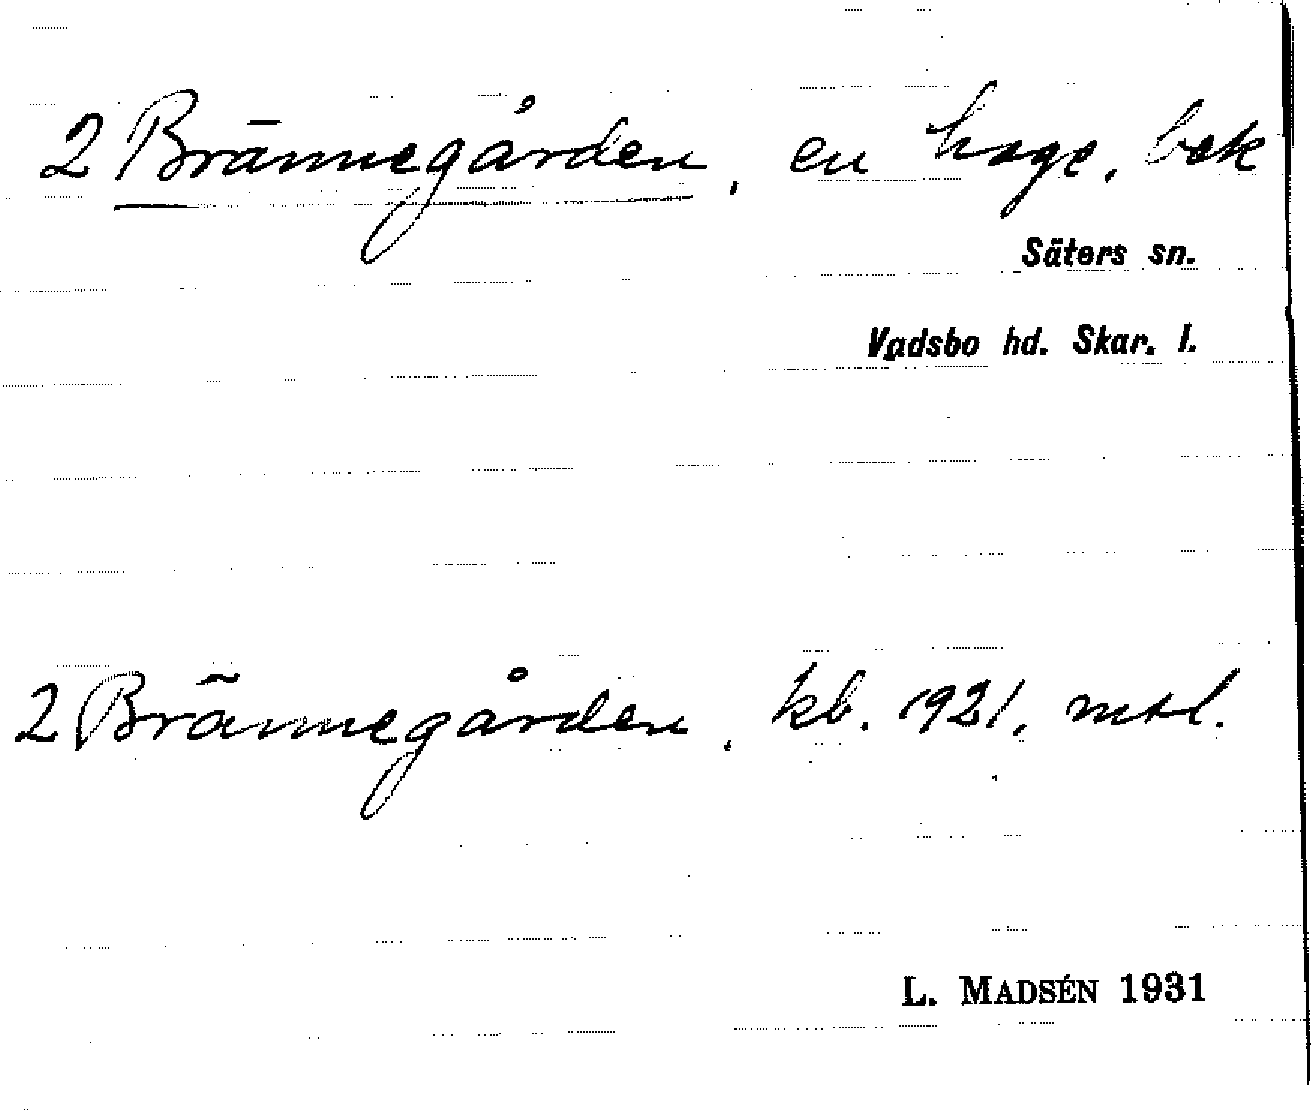 2 Brännegården, en hage, bek
Säters sn.
Vadsbo hd. Skar. l.
2 Brännegården, kb. 1921, mtl.
L. MADSÉN 1931